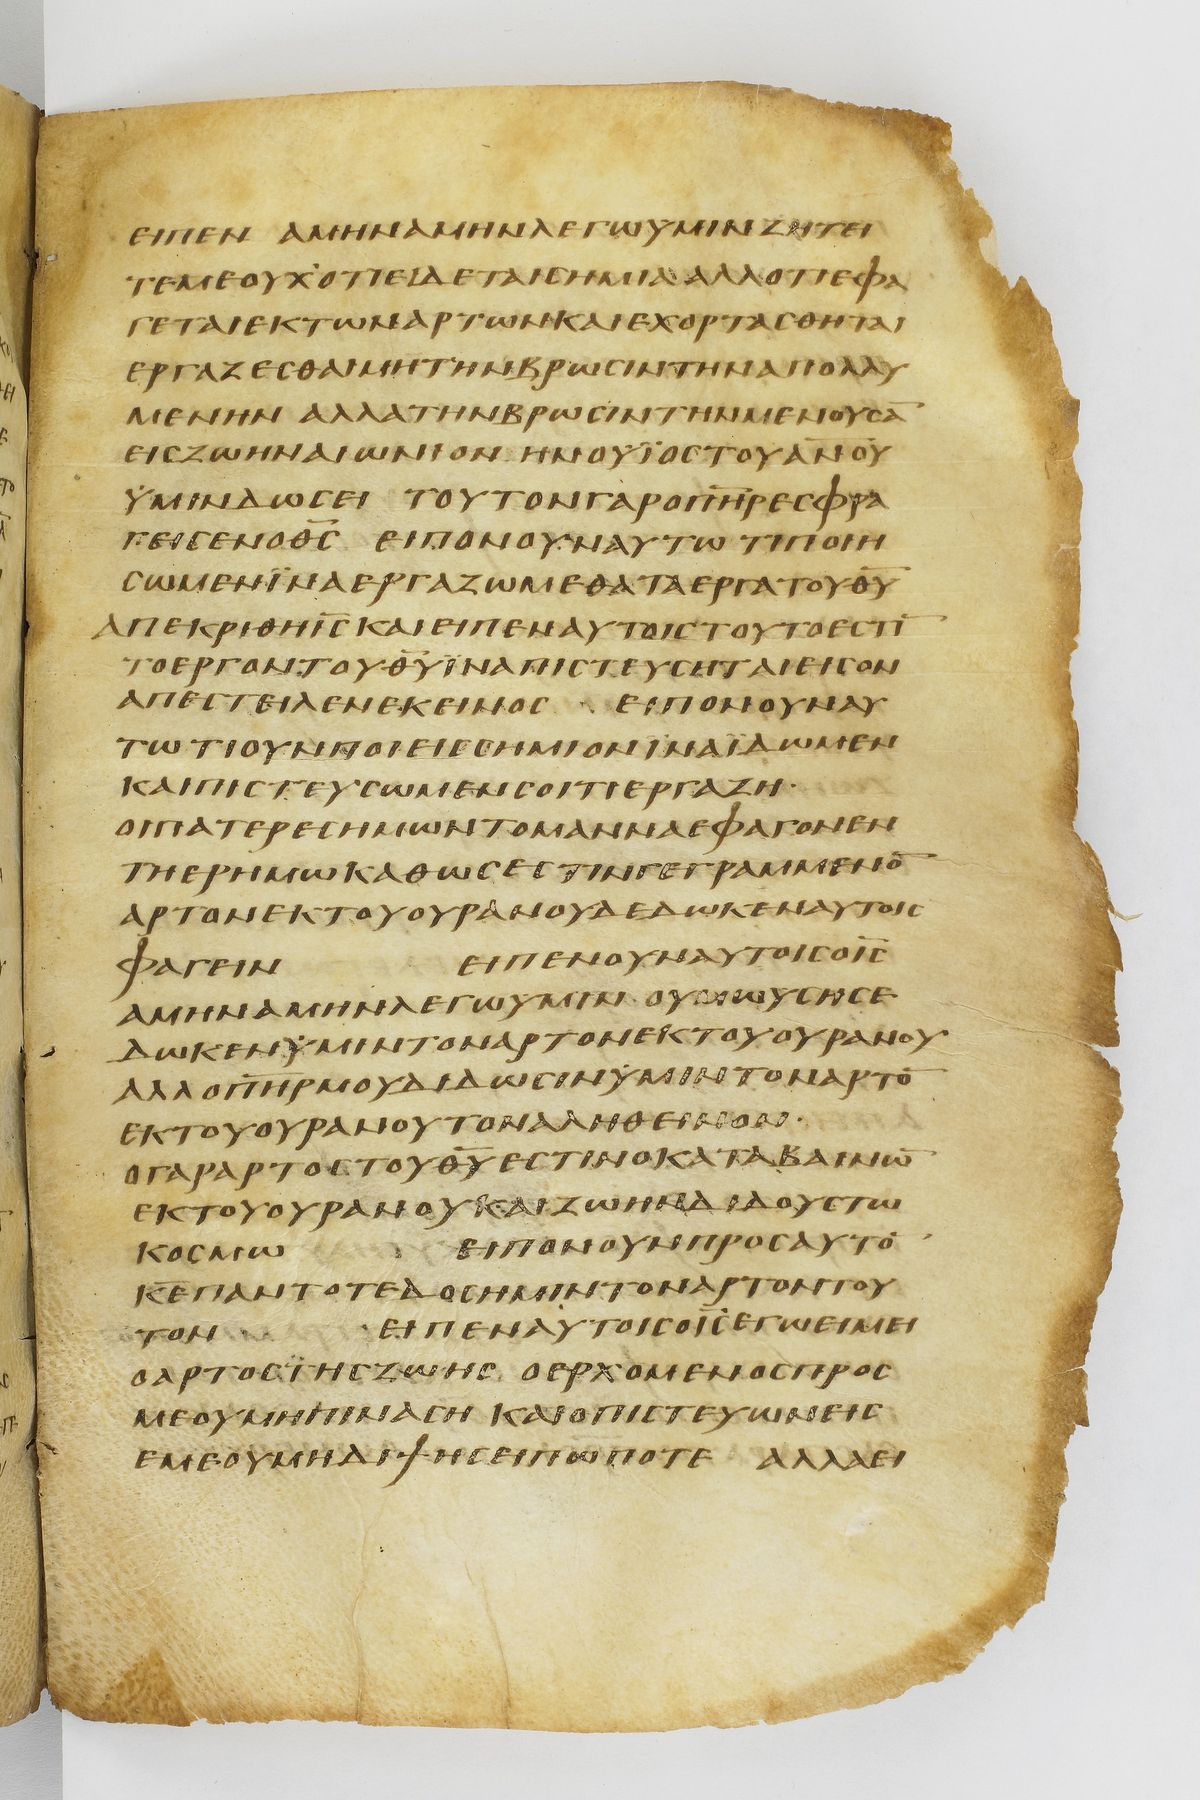 ειπεν αμηναμηνλεγωυμινζητει
τεμεουχοτιειδεταισημιααλλοτιεφα
γεταιεκτωναρτωνκαιεχορτασθηται
εργαζεσθαιμητηνβρωσιντηναπολλυ
μενην αλλατηνβρωσιντηνμενουσα̅
εισζωηναιωνιον ηνουϊοστουα̅ν̅ο̅υ̅
ϋμινδωσει τουτονγαροπ̅η̅ρ̅εσφρα
γεισενοθ̅ς̅ ειπονουναυτωτιποιη
σωμενϊναεργαζωμεθαταεργατουθ̅υ̅
απεκριθηι̅ς̅καιειπεναυτοιςτουτοεστι̅
τοεργοντουθ̅υ̅ϊναπιστευσηταιεισον
απεστειλενεκεινος ειπονουναυ
τωτιουνποιειςσημιονϊναϊδωμεν
καιπιστευσωμενσοιτιεργαζη·
οιπατερεσημωντομανναεφαγονεν
τηερημωκαθωσεστινγεγραμμενο̅
αρτονεκτουουρανουδεδωκεναυτοις
φαγειν ειπενουναυτοισοι̅ς̅
αμηναμηνλεγωυμιν ουμωυσησε
δωκενϋμιντοναρτονεκτουουρανου
αλλοπ̅η̅ρ̅μουδιδωσινϋμιντοναρτο̅
εκτουουρανουτοναληθεινον·
ογαραρτοστουθ̅υ̅εστινοκαταβαινω̅
εκτουουρανουκαιζωηνδιδουστω
κοσμω ειπονουνπροσαυτο̅
κ̅ε̅παντοτεδοσημιντοναρτοντου
τον ειπεναυτοισοι̅ς̅εγωειμει
οαρτοστησζωης οερχομενοσπρος
μεουμηπιναση καιοπιστευωνεις
εμεουμηδιψησειπωποτε αλλαει